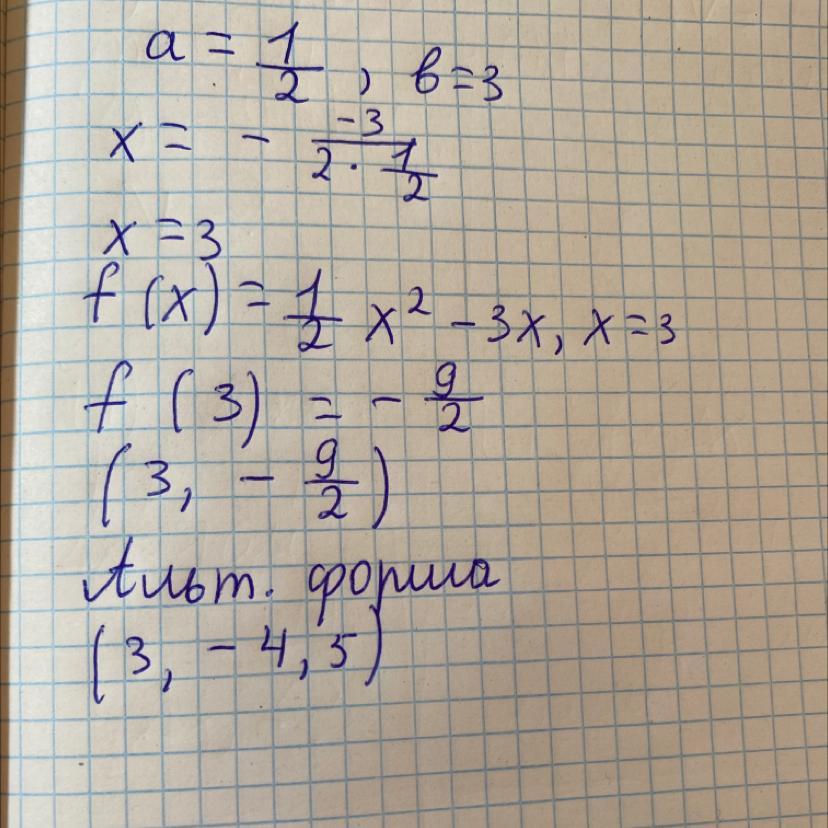 a = 1/2, b = 3
x = - -3/(2 · 1/2)
x = 3
f(x) = 1/2 x² - 3x, x = 3
f(3) = - 9/2
(3, - 9/2)
Альт. форма
(3, - 4,5)